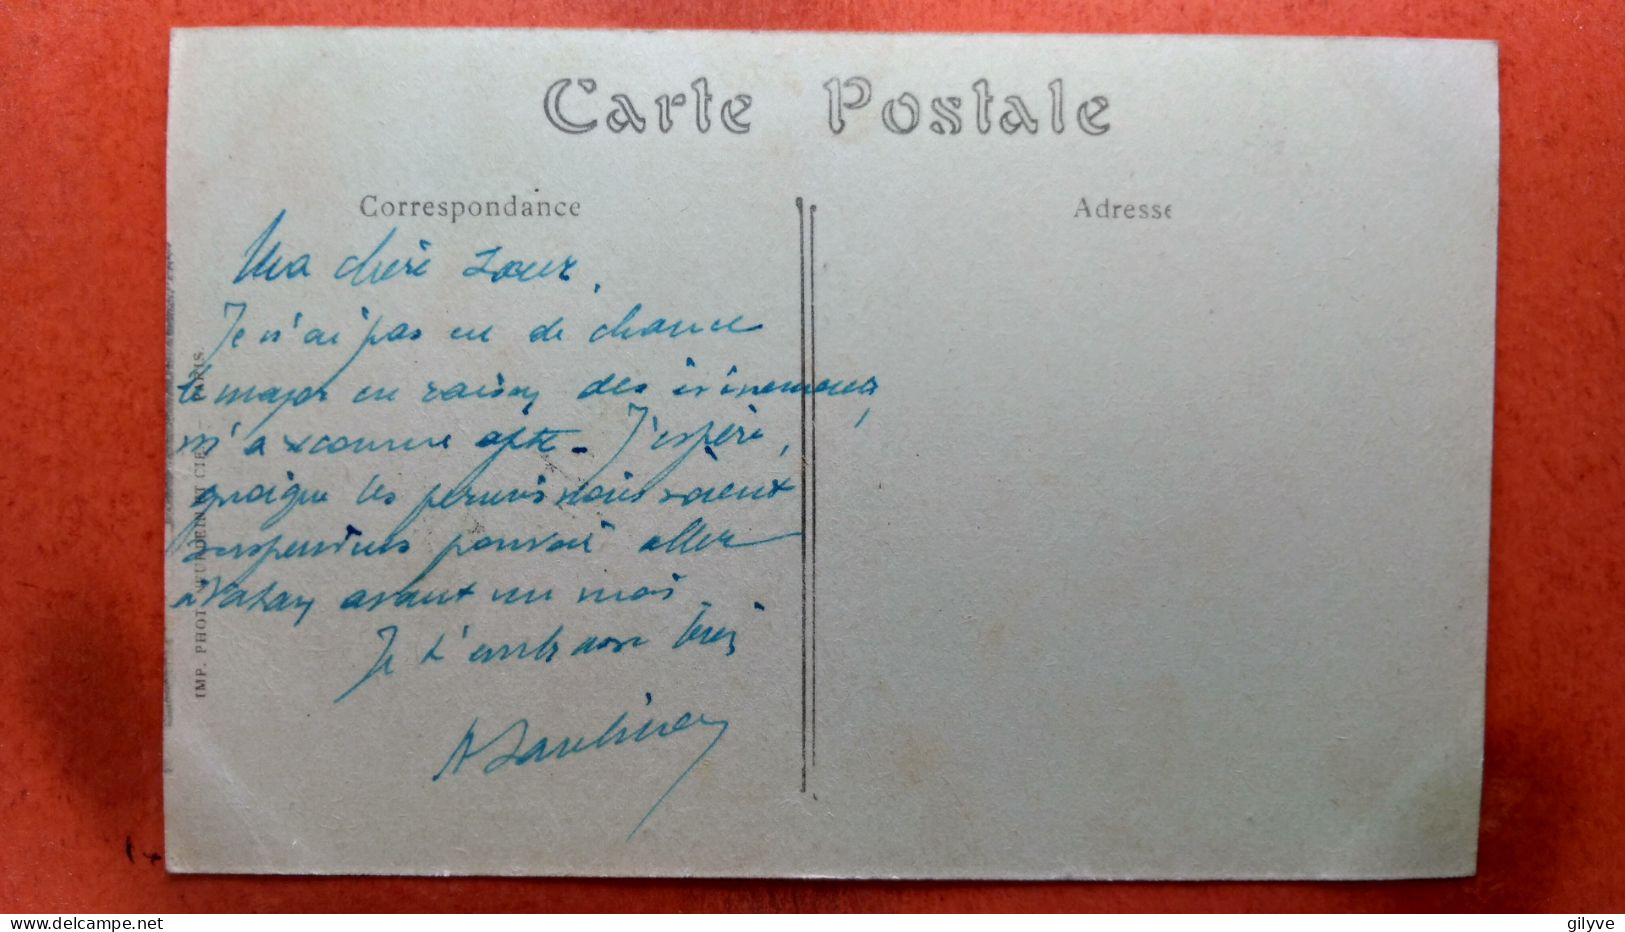 Carte Postale
Correspondance
Adresse
Ma chère Soeur,
Je n'ai pas eu de chance
le major en raison des évènements,
m'a reconnu apte. J'espère,
quoique les permissions soient
suspendues pouvoir aller
à avant un mois
Je t'embrasse bien
A
IMP. PHOT. NEURDEIN ET CIE. - PARIS.
gilyve